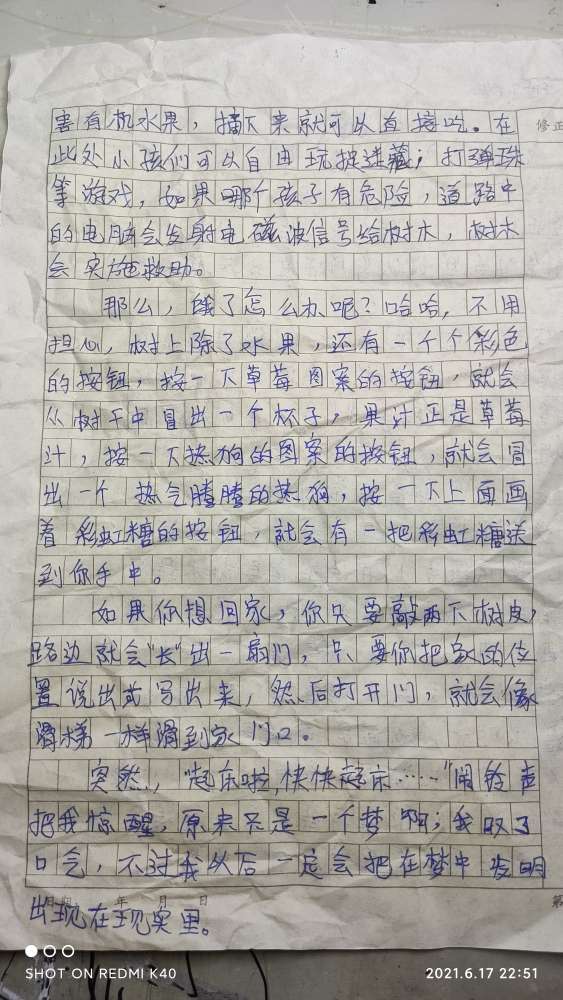 害有机水果，摘下来就可以直接吃。在
修正
此处小孩们可以自由玩捉迷藏；打弹珠
等游戏，如果哪个孩子有危险，道路中
的电脑会发射电磁波信号给树木，树木
会实施救助。
那么，饿了怎么办呢？哈哈，不用
担心，树上除了水果，还有一个个彩色
的按钮，按一下草莓图案的按钮，就会
从树干中冒出一个杯子，果汁正是草莓
汁，按一下热狗的图案的按钮，就会冒
出一个热气腾腾的热狗，按一下上面画
着彩虹糖的按钮，就会有一把彩虹糖送
到你手中。
如果你想回家，你只要敲两下树皮，
路边就会"长"出一扇门，只要你把家的位
置说出或写出来，然后打开门，就会像
滑梯一样滑到家门口。
突然，"起床啦，快快起床……"闹铃声
把我惊醒，原来只是一个梦啊；我叹了
口气，不过我以后一定会把在梦中发明
年 月 日
第
出现在现实里。
SHOT ON REDMI K40
2021.6.17 22:51